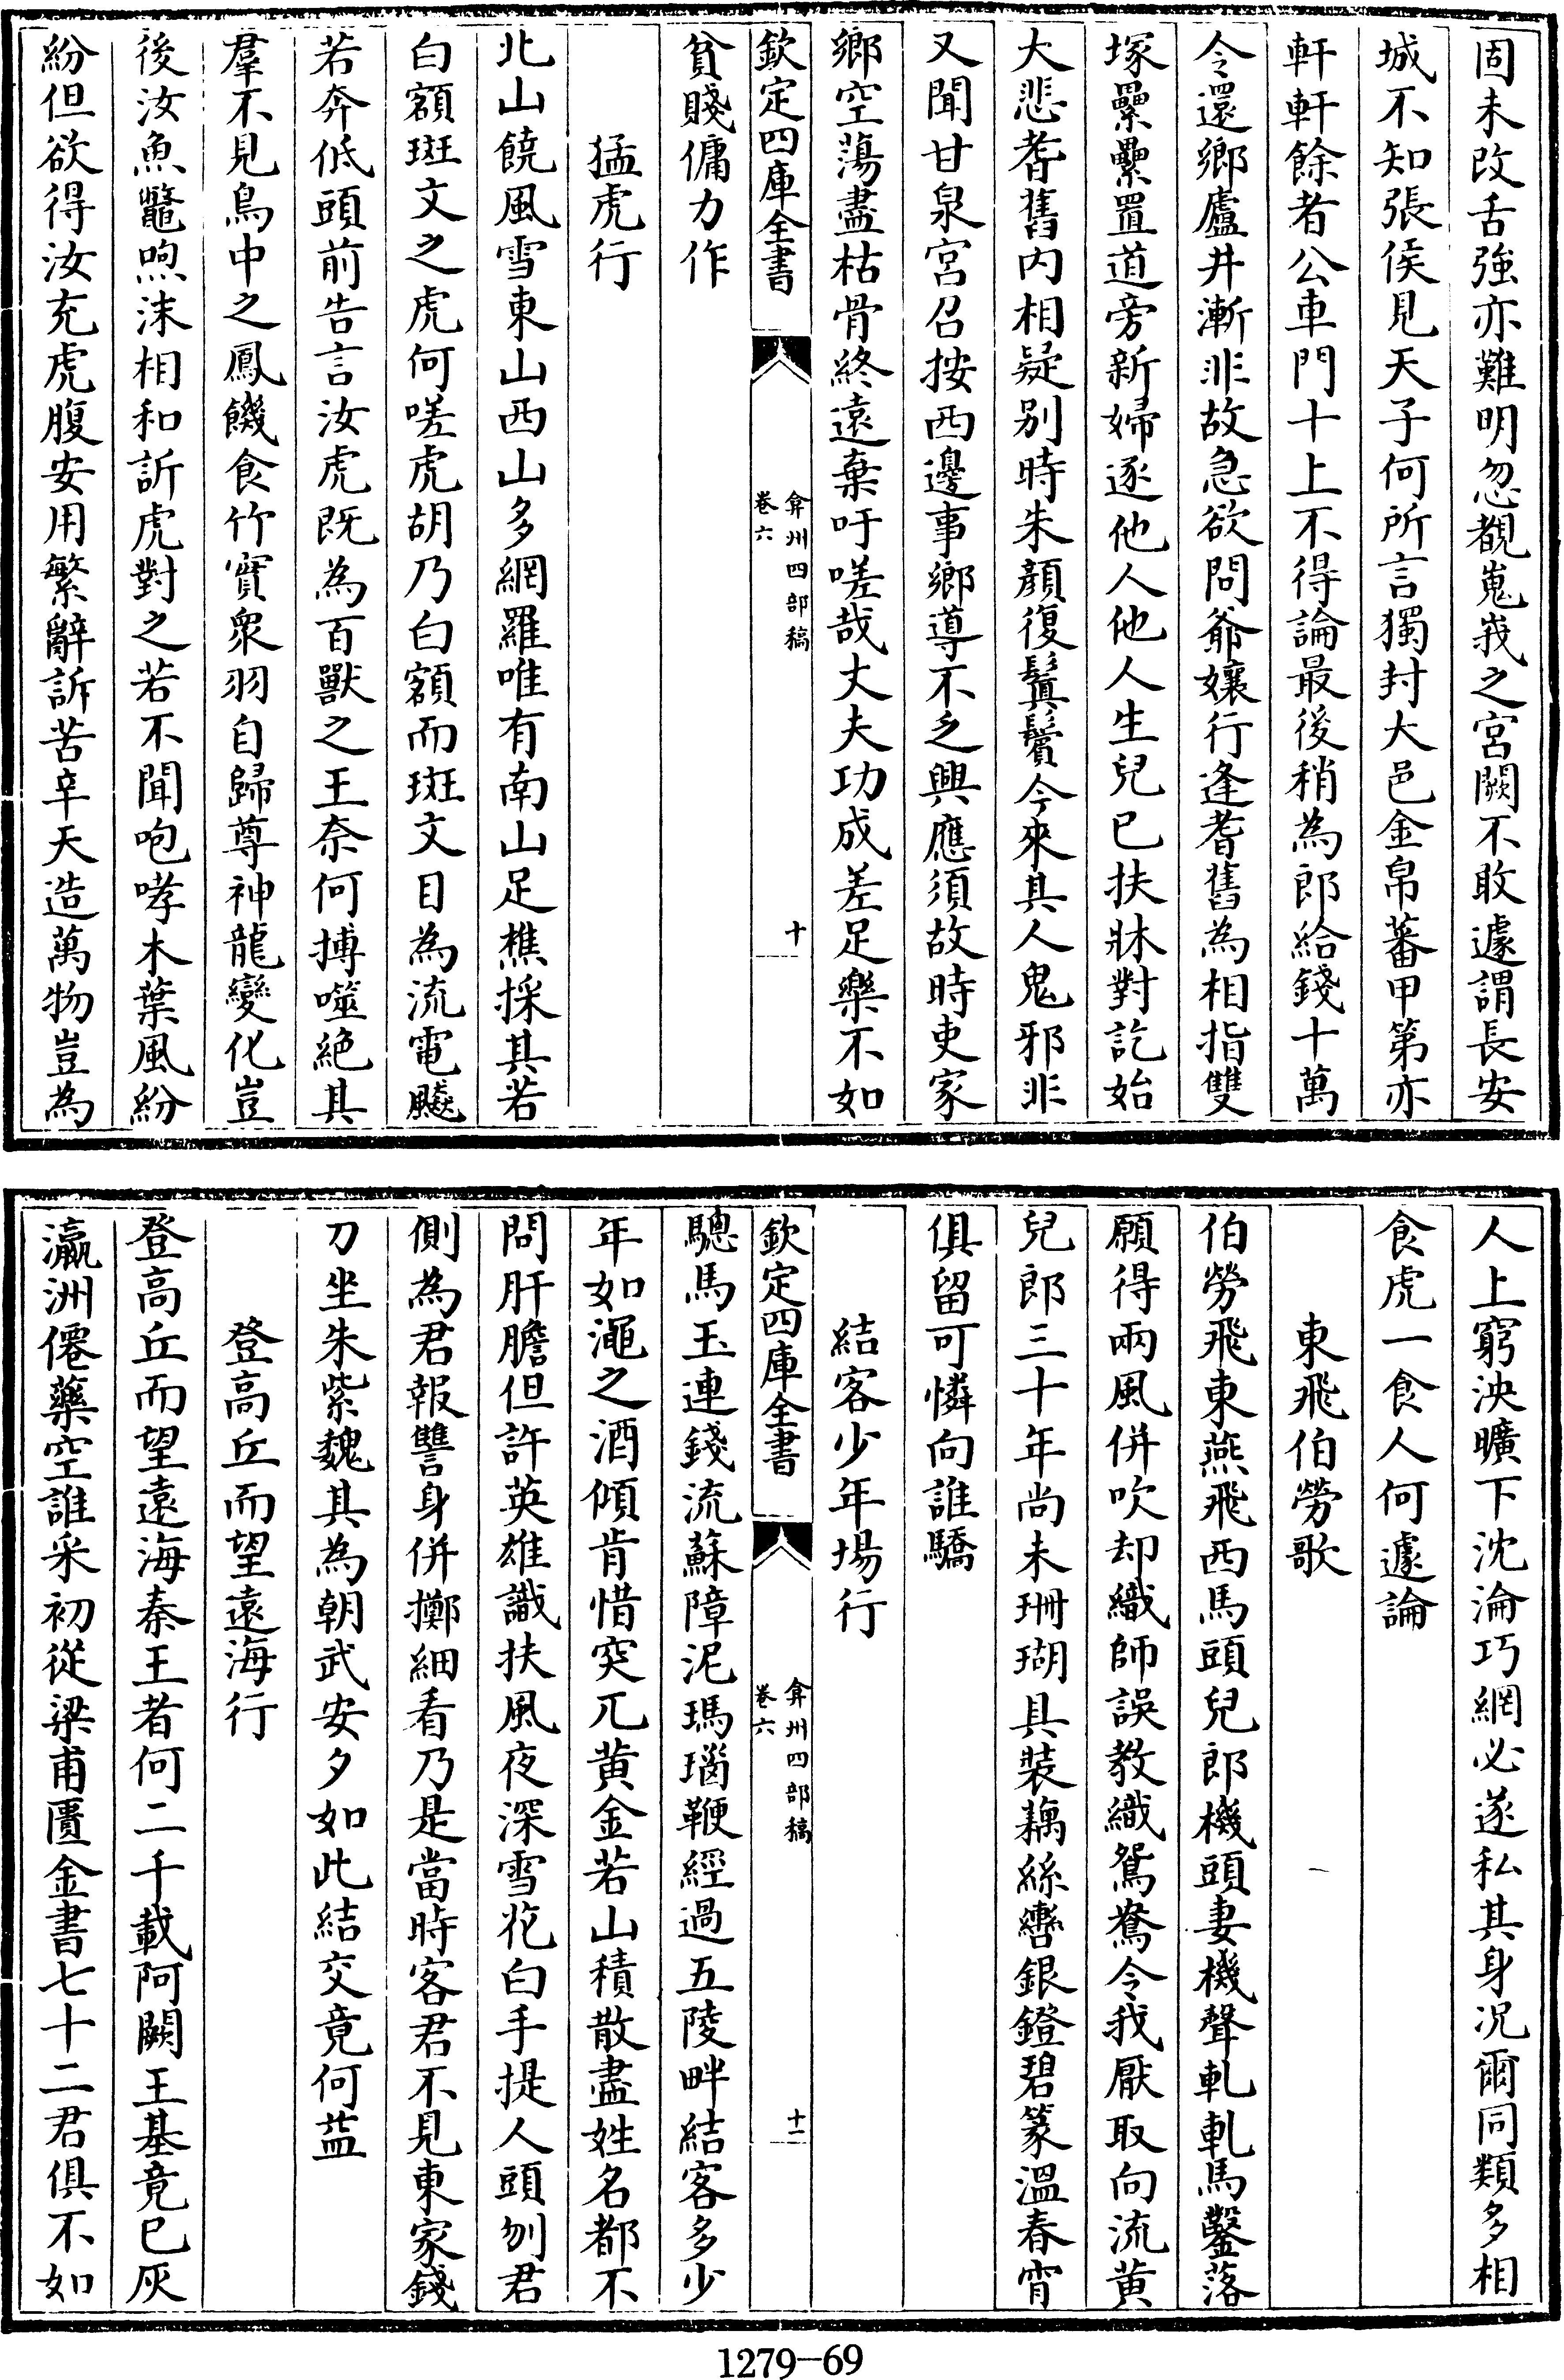 固未改舌強亦難明忽覩嵬峩之宮闕不敢遽謂長安
城不知張侯見天子何所言獨封大邑金帛蕃甲第亦
軒軒餘者公車門十上不得論最後稍為郎給錢十萬
令還鄉廬井漸非故急欲問爺孃行逢耆舊為相指雙
塚纍纍置道旁新婦逐他人他人生兒已扶牀對訖始
大悲耆舊內相疑别時朱顏復鬒鬢今來其人鬼邪非
又聞甘泉宮召按西邊事鄉導不乏興應須故時吏家
鄉空蕩盡枯骨終遠棄吁嗟哉丈夫功成差足樂不如
欽定四庫全書
弇州四部稿
卷六
十
貧賤傭力作
猛虎行
北山饒風雪東山西山多網羅唯有南山足樵採其若
白額斑文之虎何嗟虎胡乃白額而斑文目為流電飈
若奔低頭前告言汝虎既為百獸之王奈何搏噬絶其
羣不見鳥中之鳳饑食竹實衆羽自歸尊神龍變化豈
後汝魚鼈喣沫相和訢虎對之若不聞咆哮木葉風紛
紛但欲得汝充虎腹安用繁辭訴苦辛天造萬物豈為
人上窮泱曠下沈淪巧網必遂私其身况爾同類多相
食虎一食人何遽論
東飛伯勞歌
伯勞飛東燕飛西馬頭兒郎機頭妻機聲軋軋馬鑿落
願得兩風併吹却織師誤教織鴛鴦令我厭取向流黄
兒郎三十年尚未珊瑚具裝藕絲轡銀鐙碧篆溫春宵
俱留可憐向誰驕
結客少年場行
欽定四庫全書
弇州四部稿
卷六
十一
驄馬玉連錢流蘇障泥瑪瑙鞭經過五陵畔結客多少
年如澠之酒傾肯惜突兀黄金若山積散盡姓名都不
問肝膽但許英雄識扶風夜深雪花白手提人頭刎君
側為君報讐身併擲細看乃是當時客君不見東家錢
刀坐朱紫魏其為朝武安夕如此結交竟何益
登高丘而望遠海行
登高丘而望遠海秦王者何二千載阿闕王基竟已灰
瀛洲僊藥空誰采初從梁甫匱金書七十二君俱不如
1279-69